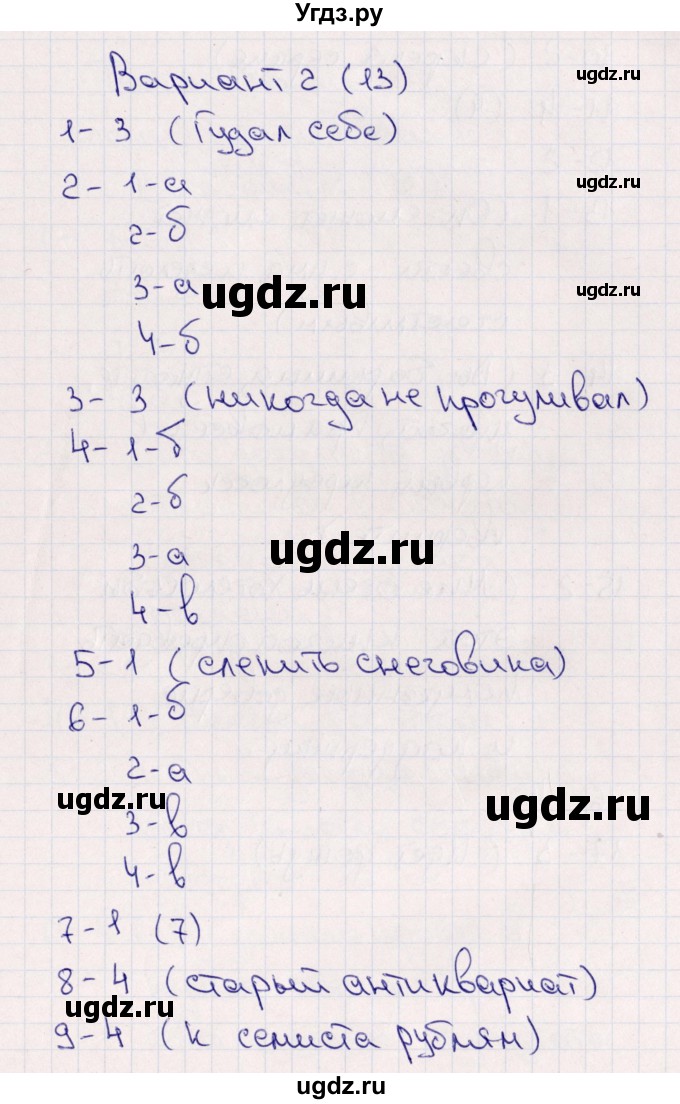 Угдз.ру
Вариант 2 (13)
ugdz.ru
1 - 3 (Гудал себе)
2 - 1 - а
ugdz.ru
2 - б
3 - а
ugdz.ru
ugdz.ru
4 - б
3 - 3 (никогда не прогуливал)
4 - 1 - б
2 - б
ugdz.ru
3 - а
4 - в
5 - 1 (слепить снеговика)
6 - 1 - б
2 - а
ugdz.ru
ugdz.ru
3 - в
4 - в
7 - 1 (7)
8 - 4 (старый антиквариат)
ugdz.ru
9 - 4 (к семиста рублям)
ugdz.ru